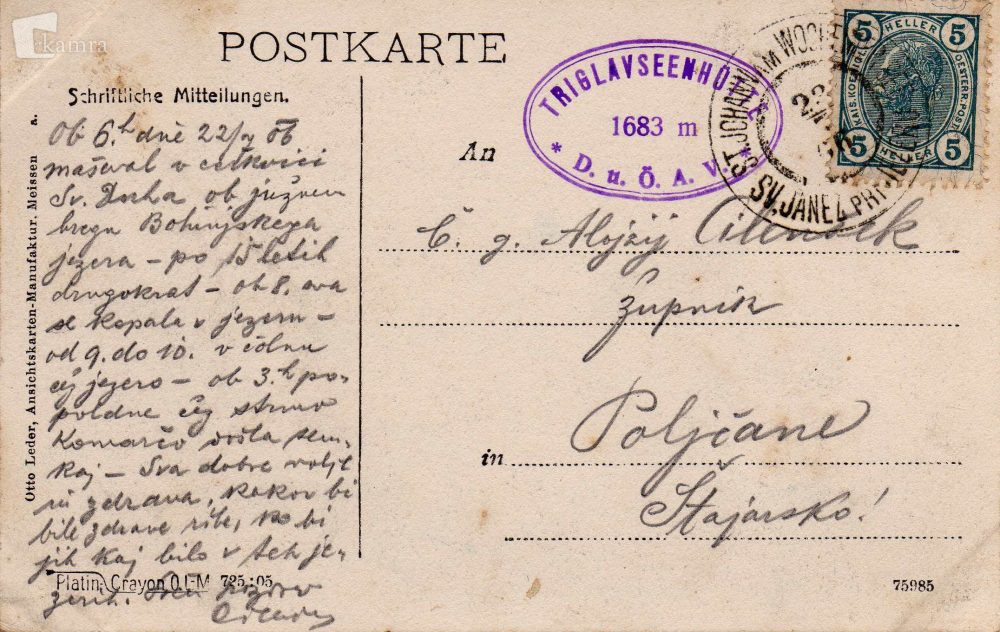 kamra
POSTKARTE
Schriftliche Mitteilungen.
Ob 6.h dne 22/ 06
maševal v cerkvici
Sv. Duha ob južnem
bregu Bohinjskega
jezera – po 15 letih
drugokrat – ob 8. sva
se kopala v jezeru –
od 9. do 10. v čolnu
čez jezero – ob 3.h po-
poldne čez strmo
Komarčo došla sem-
kaj – Sva dobre volje
in zdrava, kakor bi
bile zdrave ribe, ko bi
jih kaj bilo v teh je-
zerih.
Otto Leder, Ansichtskarten-Manufaktur, Meissen a.
Platin-Crayon O.L-M 725 : 05
TRIGLAVSEENHÜTTE
1683 m
* D. u. Ö. A. V. *
ST. JOHANN AM
SV. JANEZ PRI
5 HELLER 5
5 HELLER 5
An
Č. g. Alojzij Cilenšek
župnik
in
Poljčane
Štajarsko!
75985